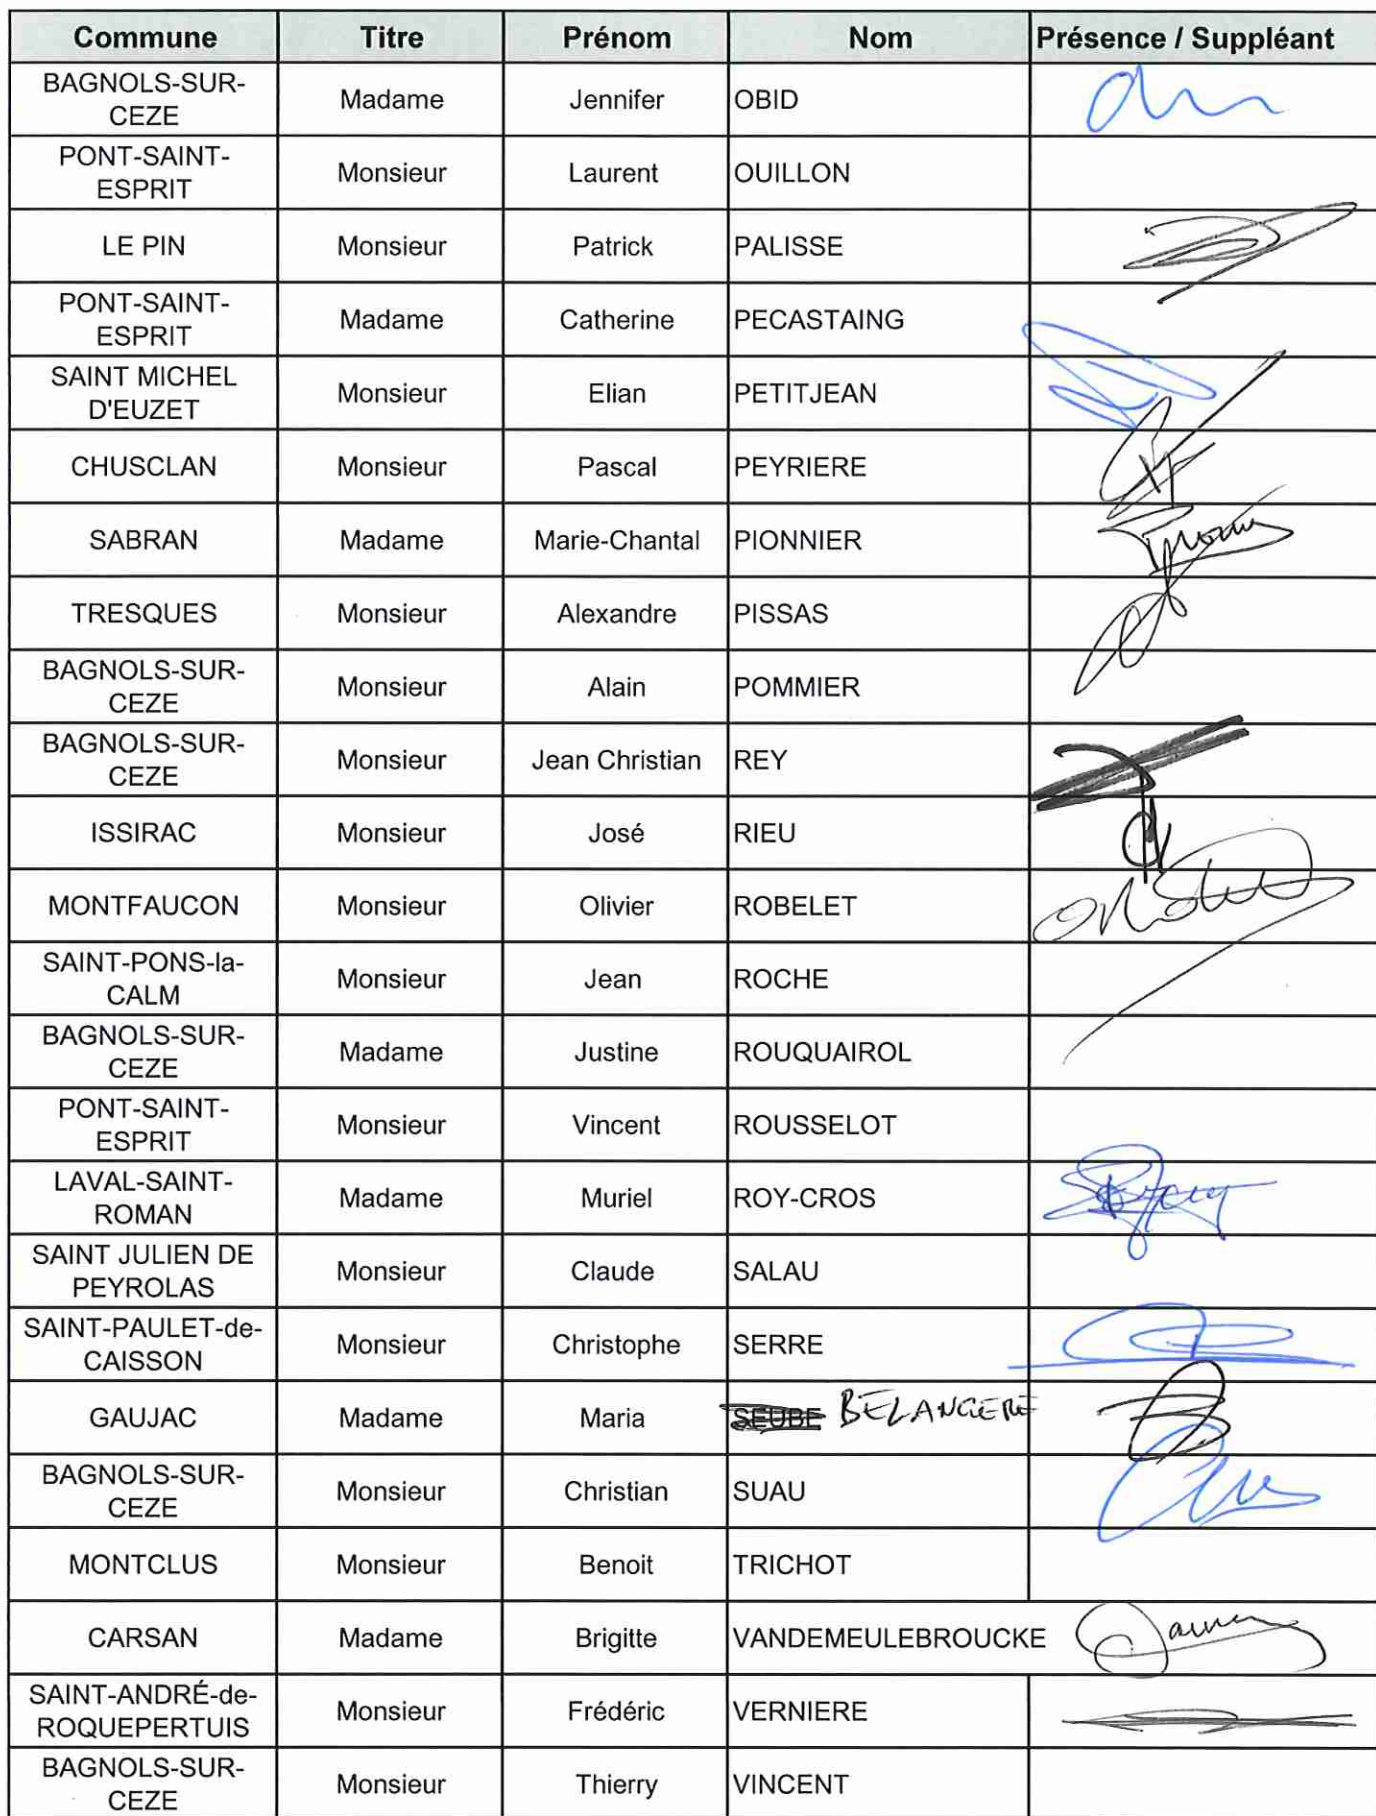 Commune Titre Prénom Nom Présence / Suppléant
BAGNOLS-SUR-
CEZE Madame Jennifer OBID
PONT-SAINT-
ESPRIT Monsieur Laurent OUILLON
LE PIN Monsieur Patrick PALISSE
PONT-SAINT-
ESPRIT Madame Catherine PECASTAING
SAINT MICHEL
D'EUZET Monsieur Elian PETITJEAN
CHUSCLAN Monsieur Pascal PEYRIERE
SABRAN Madame Marie-Chantal PIONNIER
TRESQUES Monsieur Alexandre PISSAS
BAGNOLS-SUR-
CEZE Monsieur Alain POMMIER
BAGNOLS-SUR-
CEZE Monsieur Jean Christian REY
ISSIRAC Monsieur José RIEU
MONTFAUCON Monsieur Olivier ROBELET
SAINT-PONS-la-
CALM Monsieur Jean ROCHE
BAGNOLS-SUR-
CEZE Madame Justine ROUQUAIROL
PONT-SAINT-
ESPRIT Monsieur Vincent ROUSSELOT
LAVAL-SAINT-
ROMAN Madame Muriel ROY-CROS
SAINT JULIEN DE
PEYROLAS Monsieur Claude SALAU
SAINT-PAULET-de-
CAISSON Monsieur Christophe SERRE
GAUJAC Madame Maria SEUBE BELANGERE
BAGNOLS-SUR-
CEZE Monsieur Christian SUAU
MONTCLUS Monsieur Benoit TRICHOT
CARSAN Madame Brigitte VANDEMEULEBROUCKE
SAINT-ANDRÉ-de-
ROQUEPERTUIS Monsieur Frédéric VERNIERE
BAGNOLS-SUR-
CEZE Monsieur Thierry VINCENT